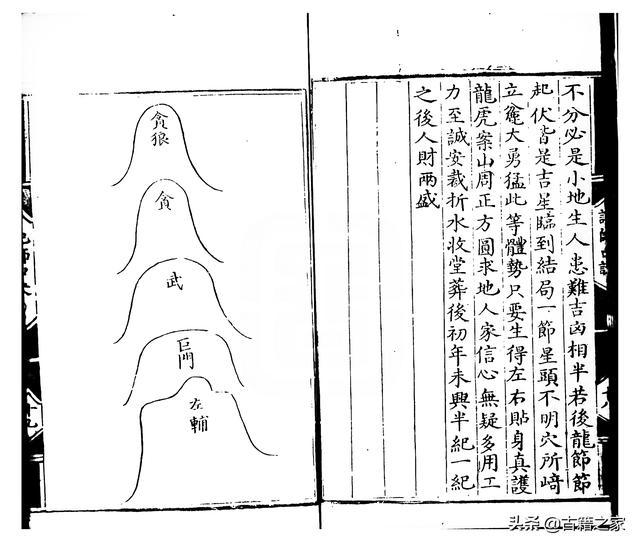 不分必是小地生人患難吉凶相半若後龍節節
起伏皆是吉星臨到結局一節星頭不明穴所﨑
立大勇猛此等體勢只要生得左右貼身真護
龍虎案山周正方圓求地人家信心無疑多用工
力至誠安裁折水收堂葬後初年未興半紀一紀
之後人財兩盛
貪狼
貪
武
巨門
左輔
十九
头条 @古籍之家